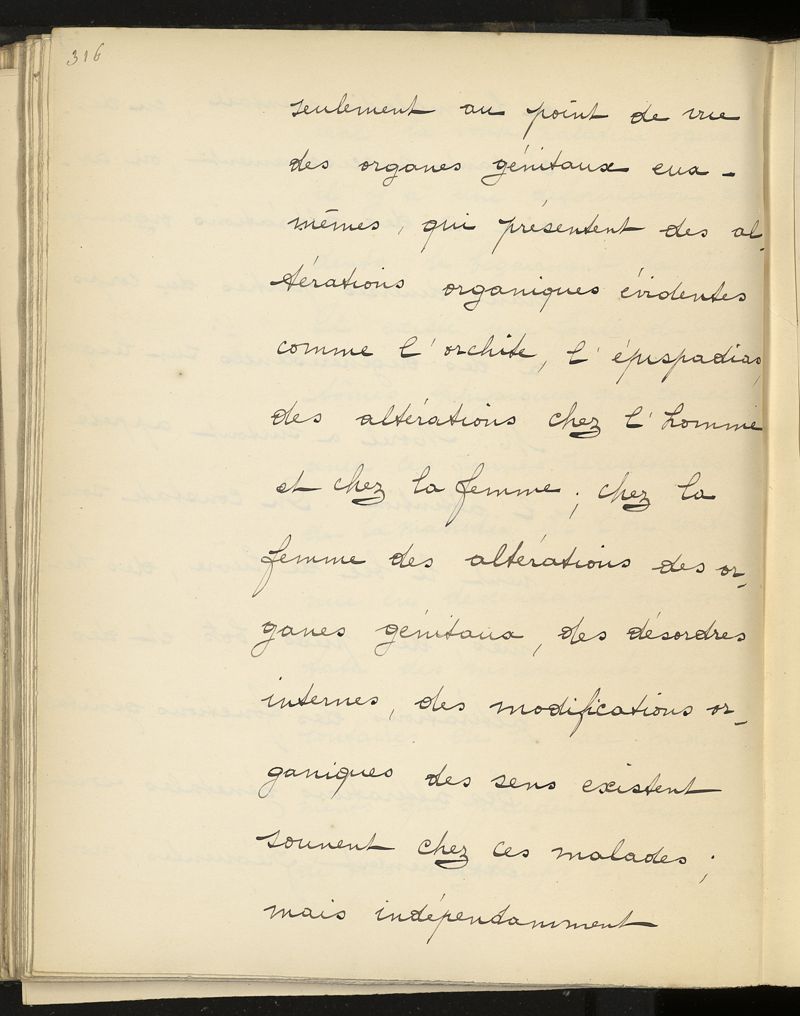 316
seulement au point de vue
des organes génitaux eux-
mêmes, qui présentent des al-
térations organiques évidentes
comme l'orchite, l'épispadias,
des altérations chez l'homme
et chez la femme ; chez la
femme des altérations des or-
ganes génitaux, des désordres
internes, des modifications or-
ganiques des sens existent
souvent chez ces malades ;
mais indépendamment